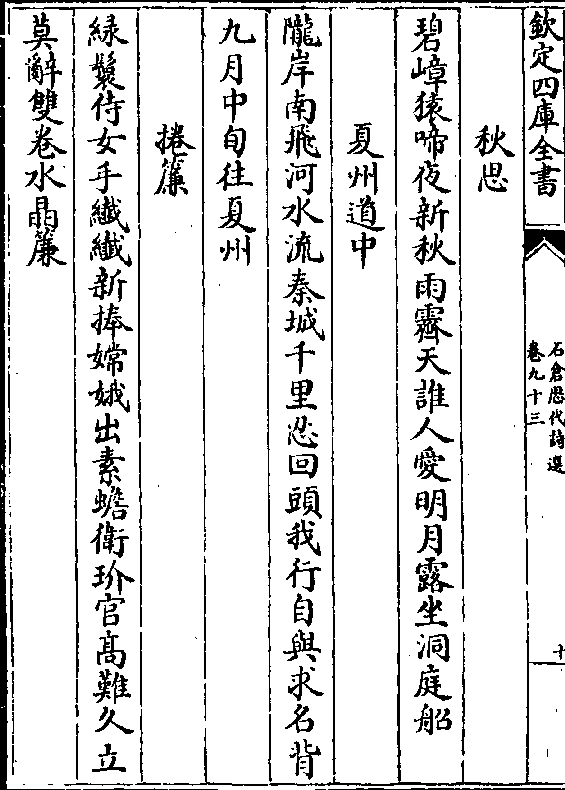 欽定四庫全書
石倉歷代詩選
卷九十三
十
秋思
碧嶂猿啼夜新秋雨霽天誰人愛明月露坐洞庭船
夏州道中
隴岸南飛河水流秦城千里忍回頭我行自與求名背
九月中旬往夏州
捲簾
緑鬟侍女手纎纎新捧嫦娥出素蟾衛玠官高難久立
莫辭雙卷水晶簾